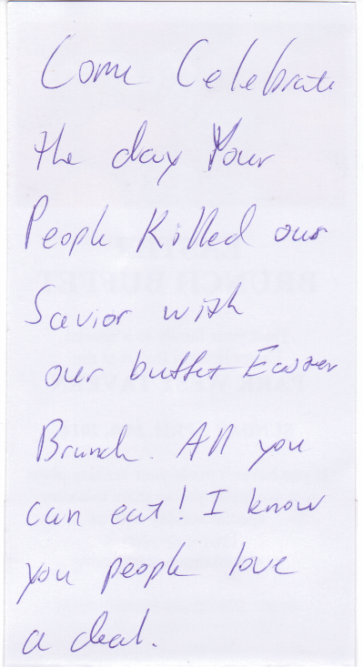 Come Celebrate
the day Your
People Killed our
Savior with
our buffet Easter
Brunch. All you
can eat! I know
you people love
a deal.